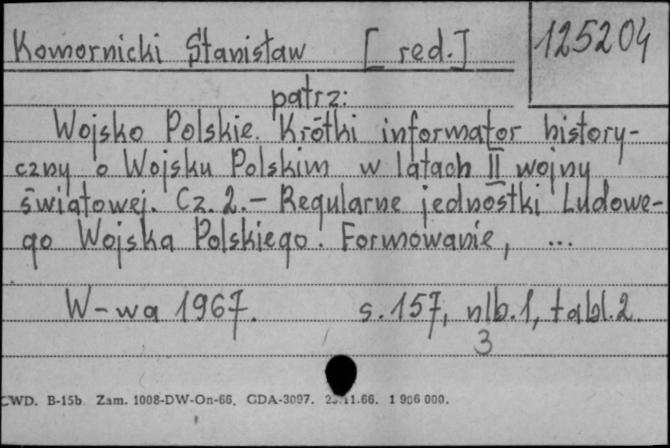 Komornicki Stanisław [red.] 125204
patrz:
Wojsko Polskie. Krótki informator history-
czny o Wojsku Polskim w latach II wojny
światowej. Cz. 2. - Regularne jednostki Ludowe-
go Wojska Polskiego. Formowanie, ...
W-wa 1967. s. 157, nlb. 1, tabl. 2.
3
CWD. B-15b. Zam. 1008-DW-On-66. GDA-3097. 11.66. 1 906 000.